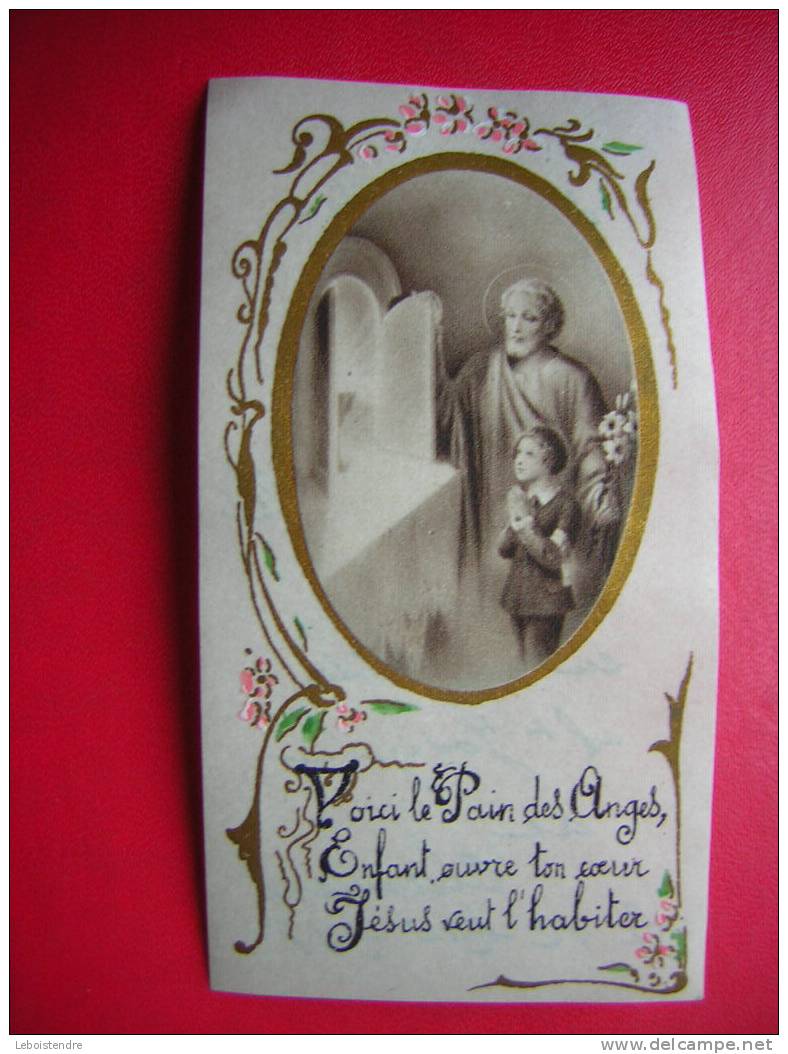 Voici le Pain des Anges,
Enfant, ouvre ton cœur
Jésus veut l'habiter
Leboistendre
www.delcampe.net